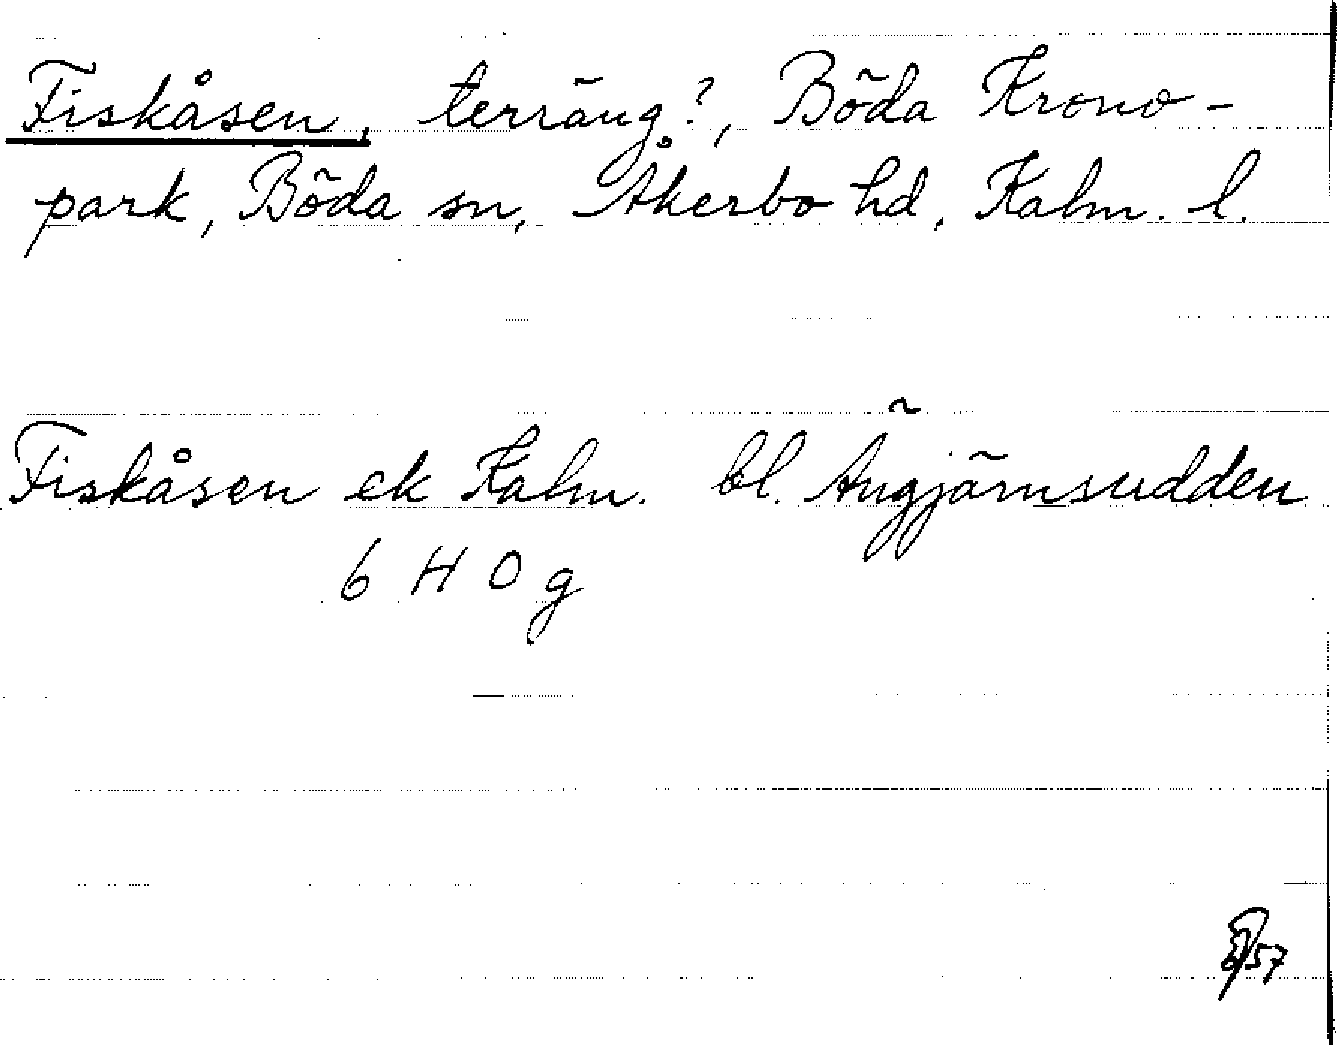 Fiskåsen, terräng?, Böda Krono-
park, Böda sn, Åkerbo hd, Kalm. l.
Fiskåsen ek Kalm. bl. Ängjärnsudden
6 H 0 g
57